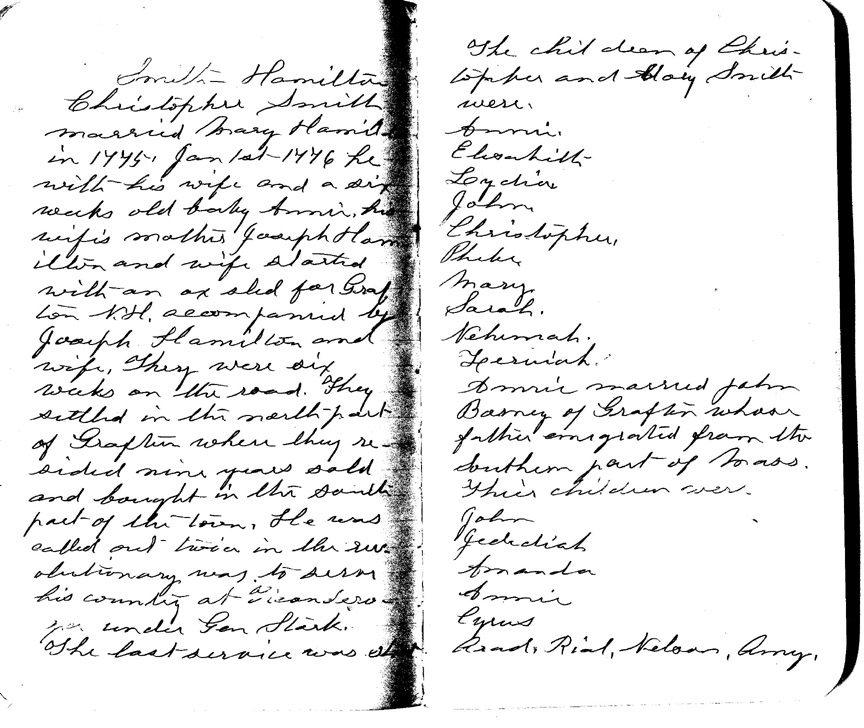 Smith - Hamilton
Christopher Smith
married Mary Hamil
in 1775. Jan 1st 1776 he
with his wife and a six
weeks old baby Annie, his
wife's mother Joseph Ham
ilton and wife started
with an ox sled for Graf
ton N.H. accompanied by
Joseph Hamilton and
wife. They were six
weeks on the road. They
settled in the north part
of Grafton where they re-
sided nine years sold
and bought in the south
part of the town. He was
called out twice in the rev-
olutionary war to serve
his country at Ticondero-
ga under Gen Stark.
The last service was
The children of Chris-
topher and Mary Smith
were.
Annie.
Elisabith
Lydia
John
Christopher,
Phebe
Mary
Sarah.
Nehimah.
Zerviah.
Annie married John
Barney of Grafton whose
father emigrated from the
Southern part of Mass.
Their children wer.
John
Jedediah
Amanda
Annie
Cyrus
Arad, Rial, Nelson, Amy,